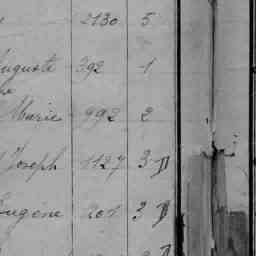 2130 5
Auguste 392 1
Marie 992 2
Joseph 1127 3 D
Eugène 201 3 D
D